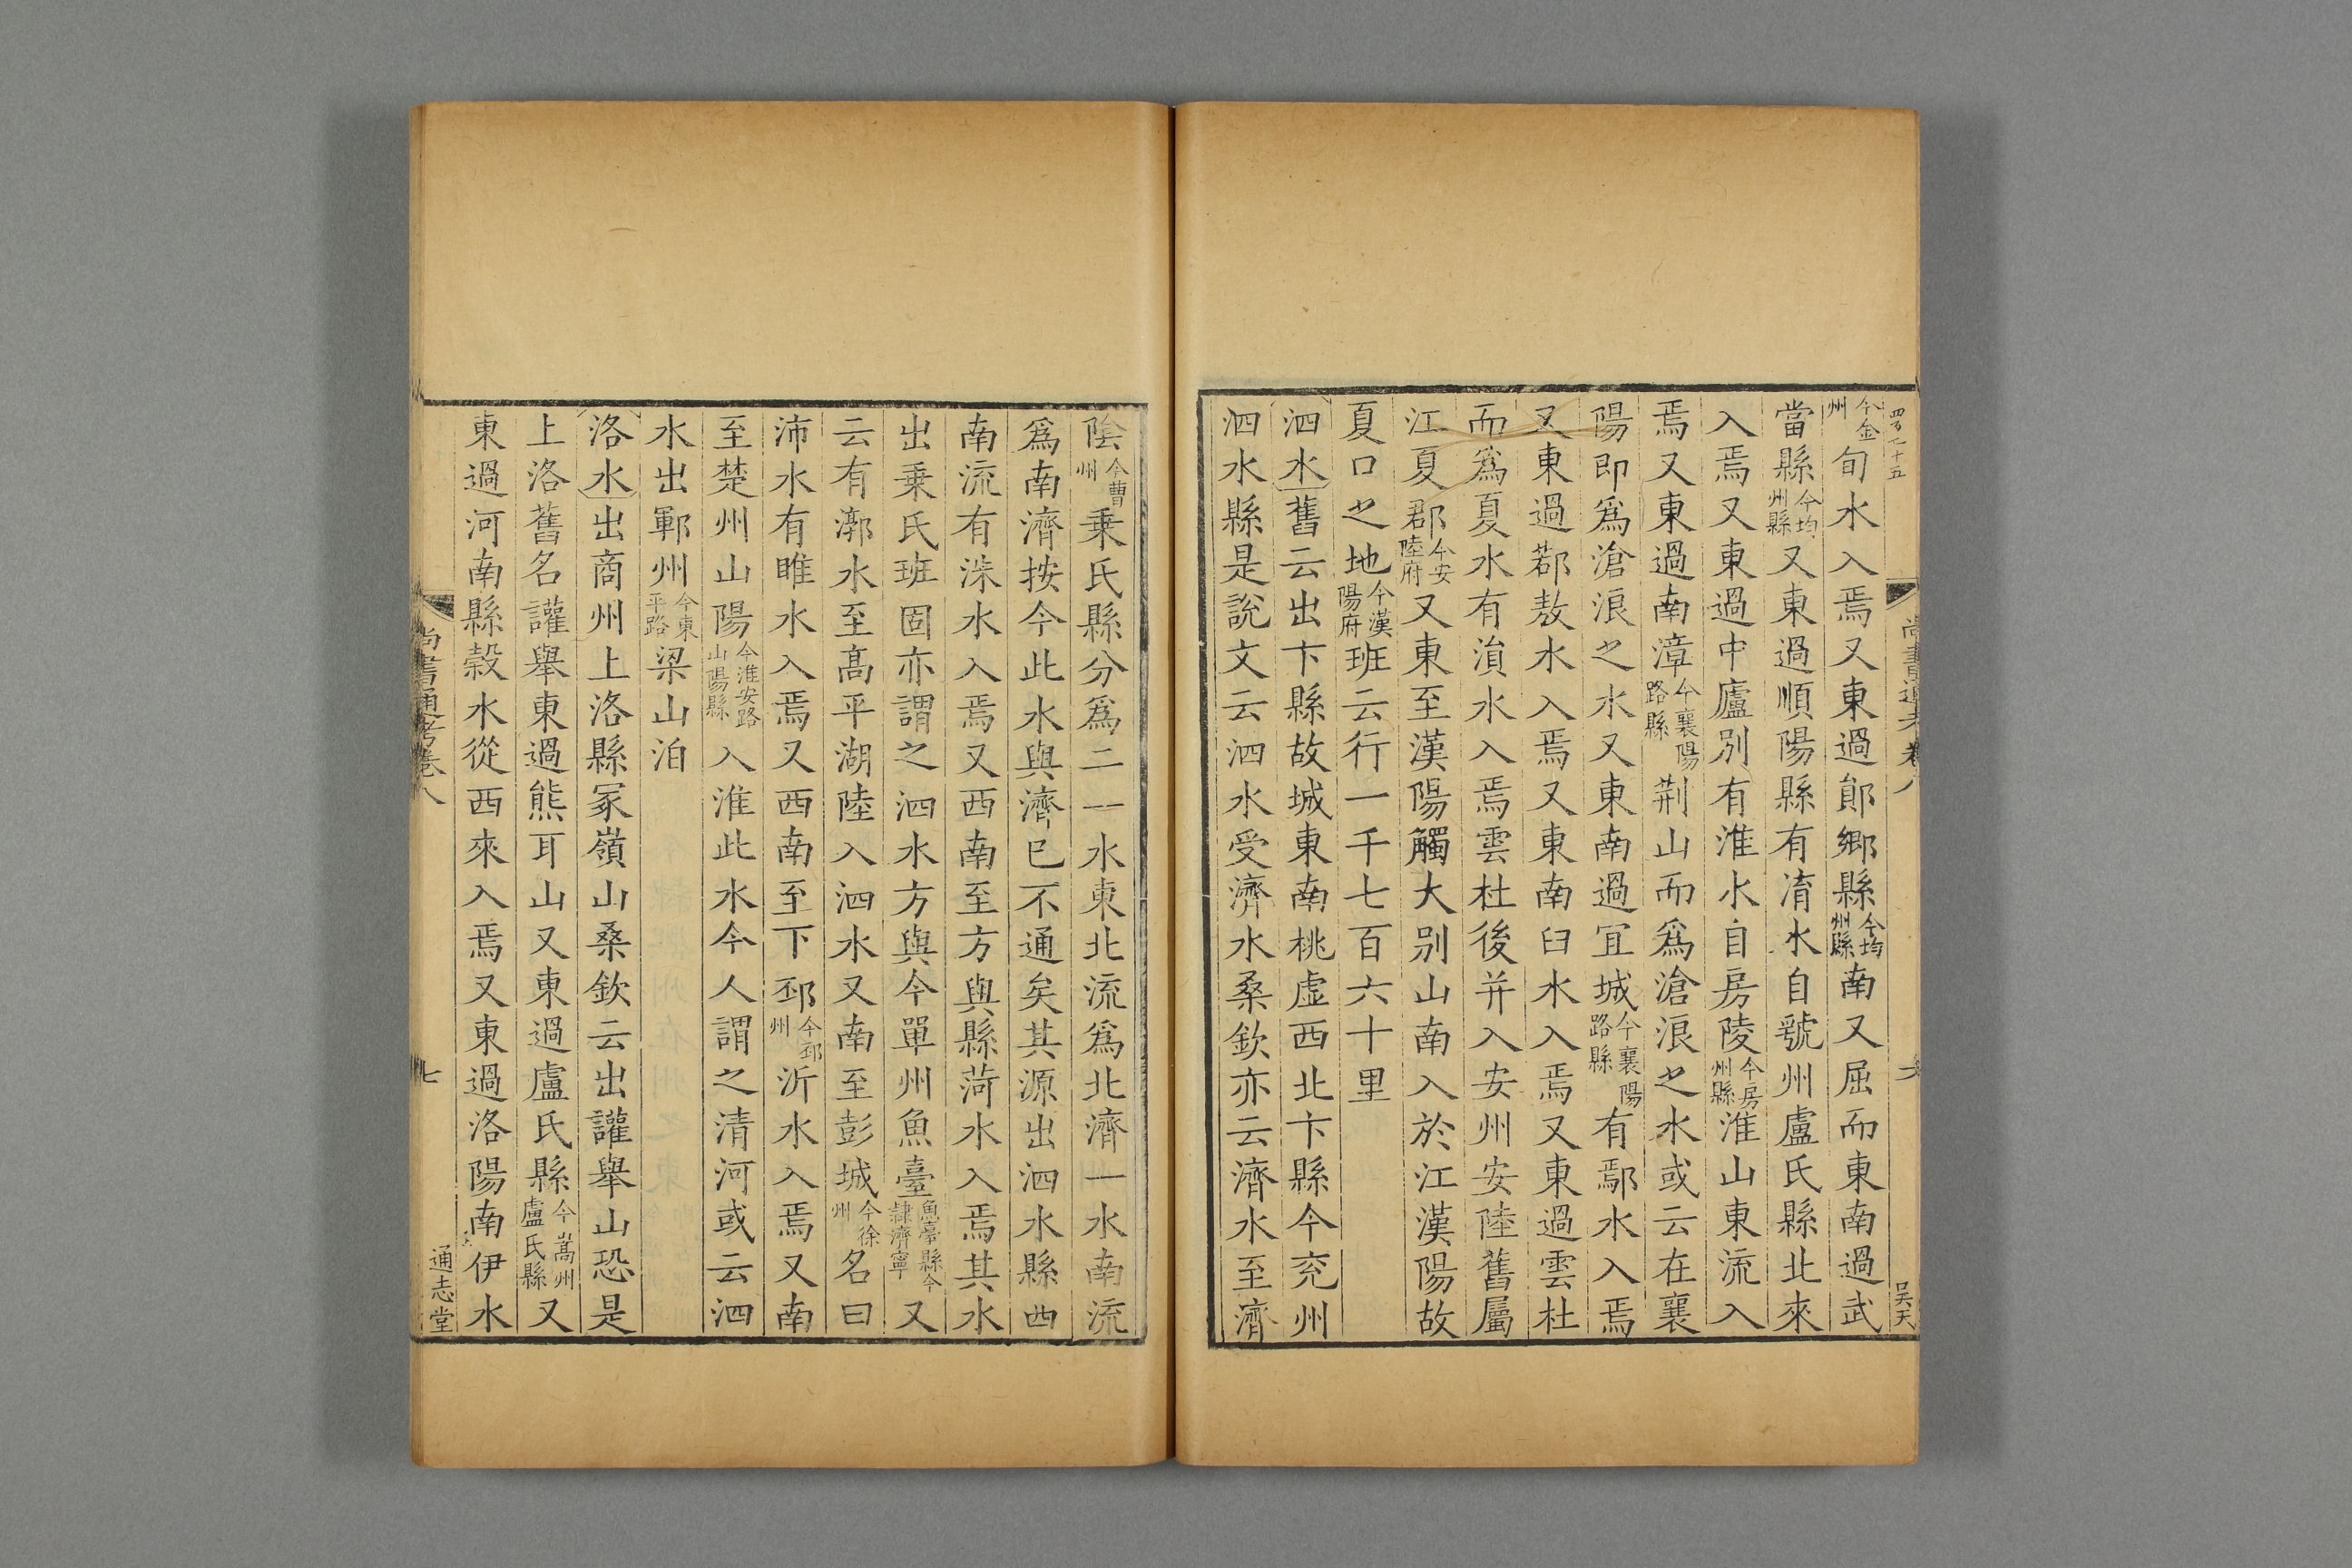 四百七十五
尚書通考卷八
吴天
今金州旬水入焉又東過鄖鄉縣今均州縣南又屈而東南過武
當縣今均州縣又東過順陽縣有淯水自虢州盧氏縣北來
入焉又東過中廬別有淮水自房陵今房州縣淮山東流入
焉又東過南漳今襄陽路縣荆山而爲滄浪之水或云在襄
陽即爲滄浪之水又東南過宜城今襄陽路縣有鄢水入焉
又東過鄀敖水入焉又東南臼水入焉又東過雲杜
而爲夏水有溳水入焉雲杜後并入安州安陸舊屬
江夏郡今安陸府又東至漢陽觸大別山南入於江漢陽故
夏口之地今漢陽府班云行一千七百六十里
泗水舊云出卞縣故城東南桃虛西北卞縣今兖州
泗水縣是說文云泗水受濟水桑欽亦云濟水至濟
陰今曹州乗氏縣分爲二一水東北流爲北濟一水南流
爲南濟按今此水與濟已不通矣其源出泗水縣西
南流有洙水入焉又西南至方與縣菏水入焉其水
出乗氏班固亦謂之泗水方與今單州魚臺魚臺縣今隸濟寧又
云有漷水至高平湖陸入泗水又南至彭城今徐州名曰
沛水有睢水入焉又西南至下邳今邳州沂水入焉又南
至楚州山陽今淮安路山陽縣入淮此水今人謂之清河或云泗
水出鄆州今東平路梁山泊
洛水出商州上洛縣冢嶺山桑欽云出讙舉山恐是
上洛舊名讙舉東過熊耳山又東過盧氏縣今嵩州盧氏縣又
東過河南縣穀水從西來入焉又東過洛陽南伊水
尚書通考卷八
七
通志堂